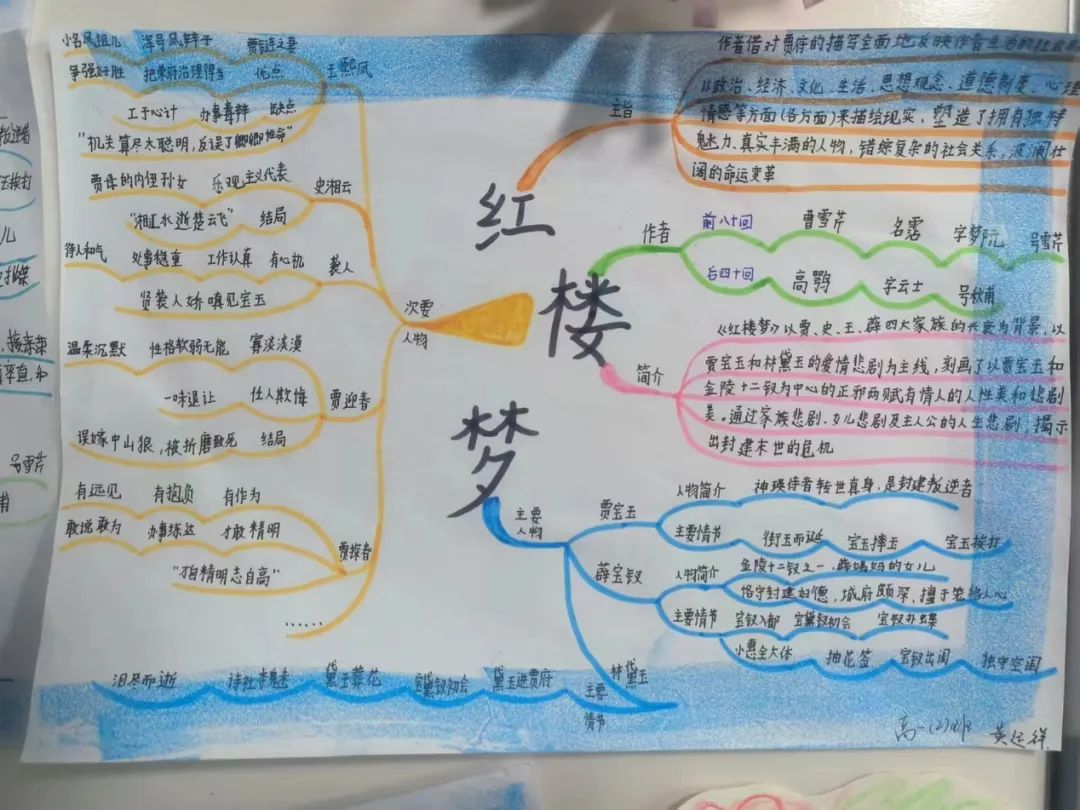 红
楼
梦
主旨
作者借对贾府的描写全面地反映作者生活的社会
从政治、经济、文化、生活、思想观念、道德制度、心理
情感等方面(各方面)来描绘现实,塑造了拥有独特
魅力、真实丰满的人物,错综复杂的社会关系,波澜壮
阔的命运变革
作者
前八十回 曹雪芹 名霑 字梦阮 号雪芹
后四十回 高鹗 字云士 号秋甫
简介
《红楼梦》以贾、史、王、薛四大家族的兴衰为背景,以
贾宝玉和林黛玉的爱情悲剧为主线,刻画了以贾宝玉和
金陵十二钗为中心的正邪两赋有情人的人性美和悲剧
美。通过家族悲剧、女儿悲剧及主人公的人生悲剧,揭示
出封建末世的危机
主要
人物
贾宝玉
人物简介 神瑛侍者转世真身,是封建叛逆者
主要情节 衔玉而诞 宝玉摔玉 宝玉挨打
薛宝钗
人物简介 金陵十二钗之一,薛姨妈的女儿
恪守封建妇德,城府颇深,擅于笼络人心
主要情节 宝钗入都 宝黛钗初会 宝钗扑蝶
小惠全大体 抽花签 宝钗出闺 独守空闺
林黛玉
主要
情节
黛玉进贾府 宝黛钗初会 黛玉葬花 诗社夺魁 泪尽而逝
次要
人物
王熙凤
小名凤姐儿 浑号凤辣子 贾琏之妻
争强好胜 把荣府治理得当 优点
工于心计 办事毒辣 缺点
"机关算尽太聪明,反误了卿卿性命"
史湘云
贾母的内侄孙女 乐观主义代表
"湘江水逝楚云飞" 结局
袭人
待人和气 处事稳重 工作认真 有心机
贤袭人娇嗔见宝玉
贾迎春
温柔沉默 性格软弱无能 寡淡淡漠
一味退让 任人欺侮
误嫁中山狼,被折磨致死 结局
贾探春
有远见 有抱负 有作为
敢说敢为 办事练达 才敢精明
"才自精明志自高"
……
高一(2)班
号雪芹